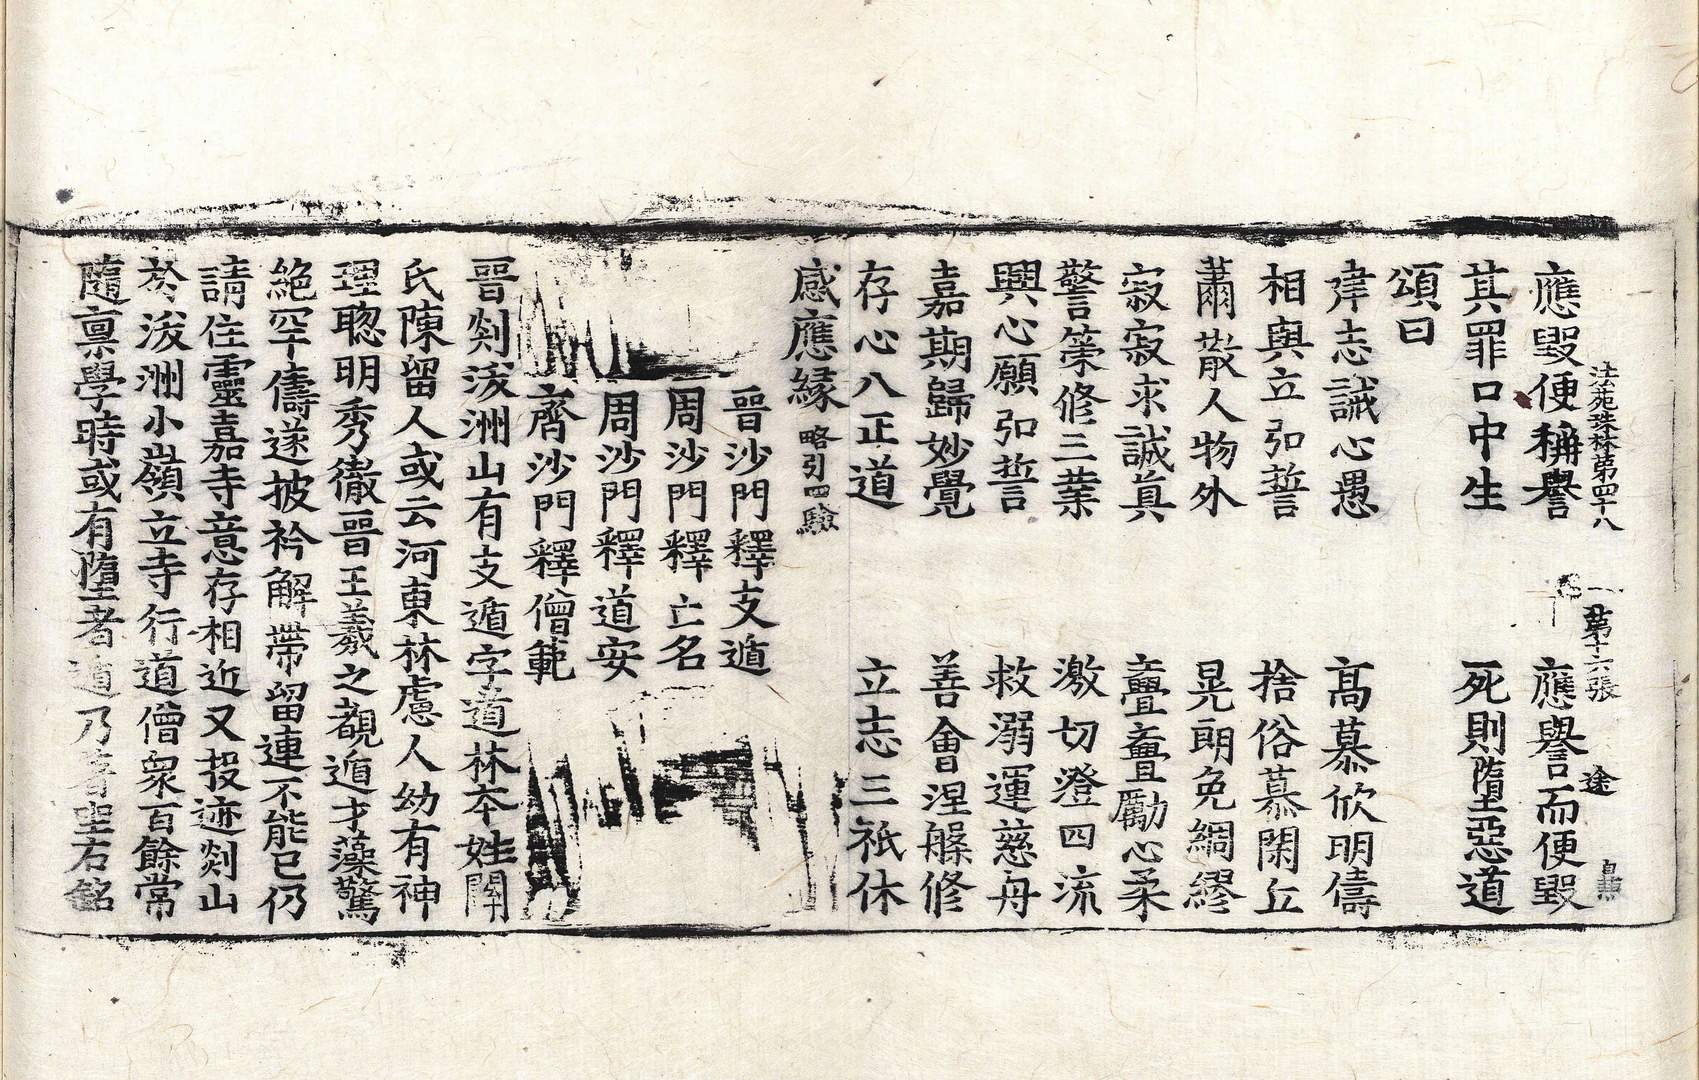 法苑珠林第四十八 第十六張 途
應毀便稱譽 應譽而便毀
其罪口中生 死則墮惡道
頌曰
肆志誡心愚 高慕欣明儔
相與立弘誓 捨俗慕閑丘
蕭散人物外 晃朗免綢繆
寂寂求誠真 亹亹勵心柔
警策修三業 激切澄四流
興心願弘誓 救溺運慈舟
嘉期歸妙覺 善會涅槃修
存心八正道 立志三祇休
感應緣 略引四驗
晉沙門釋支遁
周沙門釋亡名
周沙門釋道安
齊沙門釋僧範
晉剡沃洲山有支遁字道林本姓關
氏陳留人或云河東林慮人幼有神
理聰明秀徹晉王羲之覩遁才藻驚
絕罕儔遂披衿解帶留連不能已仍
請住靈嘉寺意存相近又投迹剡山
於沃洲小嶺立寺行道僧眾百餘常
隨稟學時或有墮者遁乃著座右銘